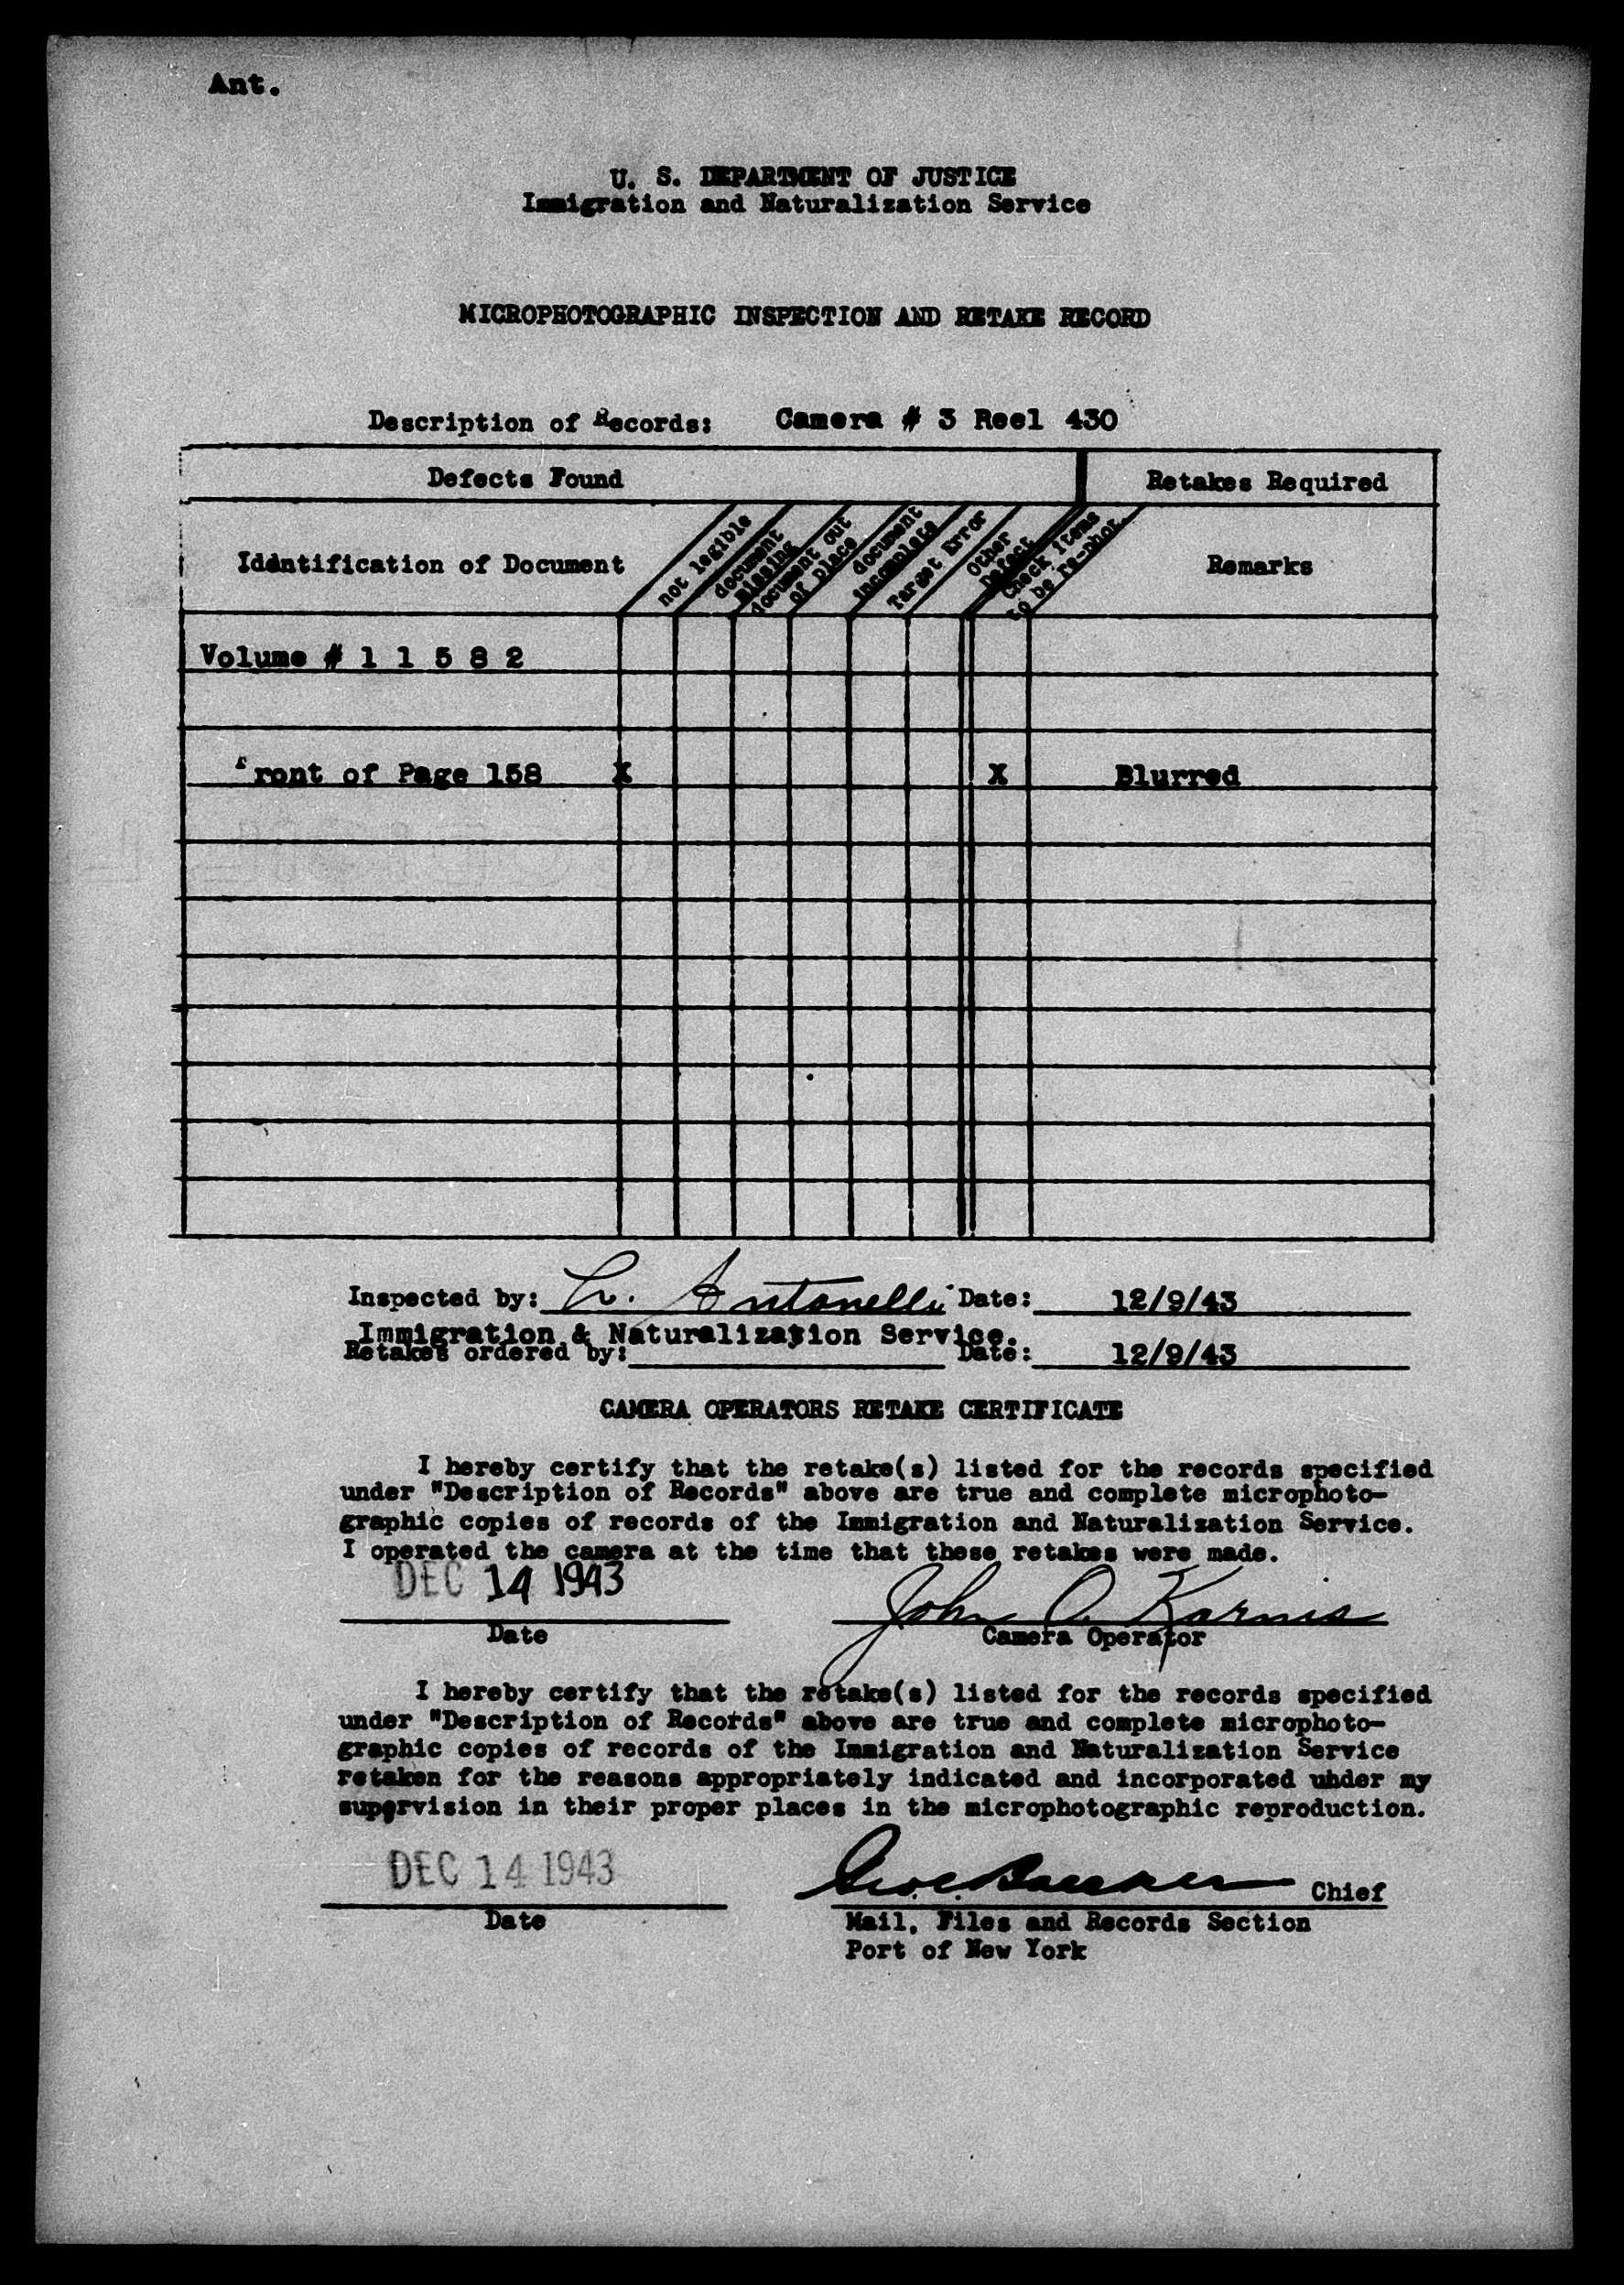 Ant.
U. S. DEPARTMENT OF JUSTICE
Immigration and Naturalization Service
MICROPHOTOGRAPHIC INSPECTION AND RETAKE RECORD
Description of Records: Camera # 3 Reel 430
Defects Found Retakes Required
Identification of Document
not legible
document missing
document out of place
document incomplete
Target Error
Other Defect
Check items to be re-phot.
Remarks
Volume # 1 1 5 8 2
Front of Page 158 X X Blurred
Inspected by: L. Antonelli Date: 12/9/43
Immigration & Naturalization Service.
Retakes ordered by: Date: 12/9/43
CAMERA OPERATORS RETAKE CERTIFICATE
I hereby certify that the retake(s) listed for the records specified
under "Description of Records" above are true and complete microphoto-
graphic copies of records of the Immigration and Naturalization Service.
I operated the camera at the time that these retakes were made.
DEC 14 1943 John A. Karnis
Date Camera Operator
I hereby certify that the retake(s) listed for the records specified
under "Description of Records" above are true and complete microphoto-
graphic copies of records of the Immigration and Naturalization Service
retaken for the reasons appropriately indicated and incorporated under my
supervision in their proper places in the microphotographic reproduction.
DEC 14 1943 Chief
Date Mail, Files and Records Section
Port of New York